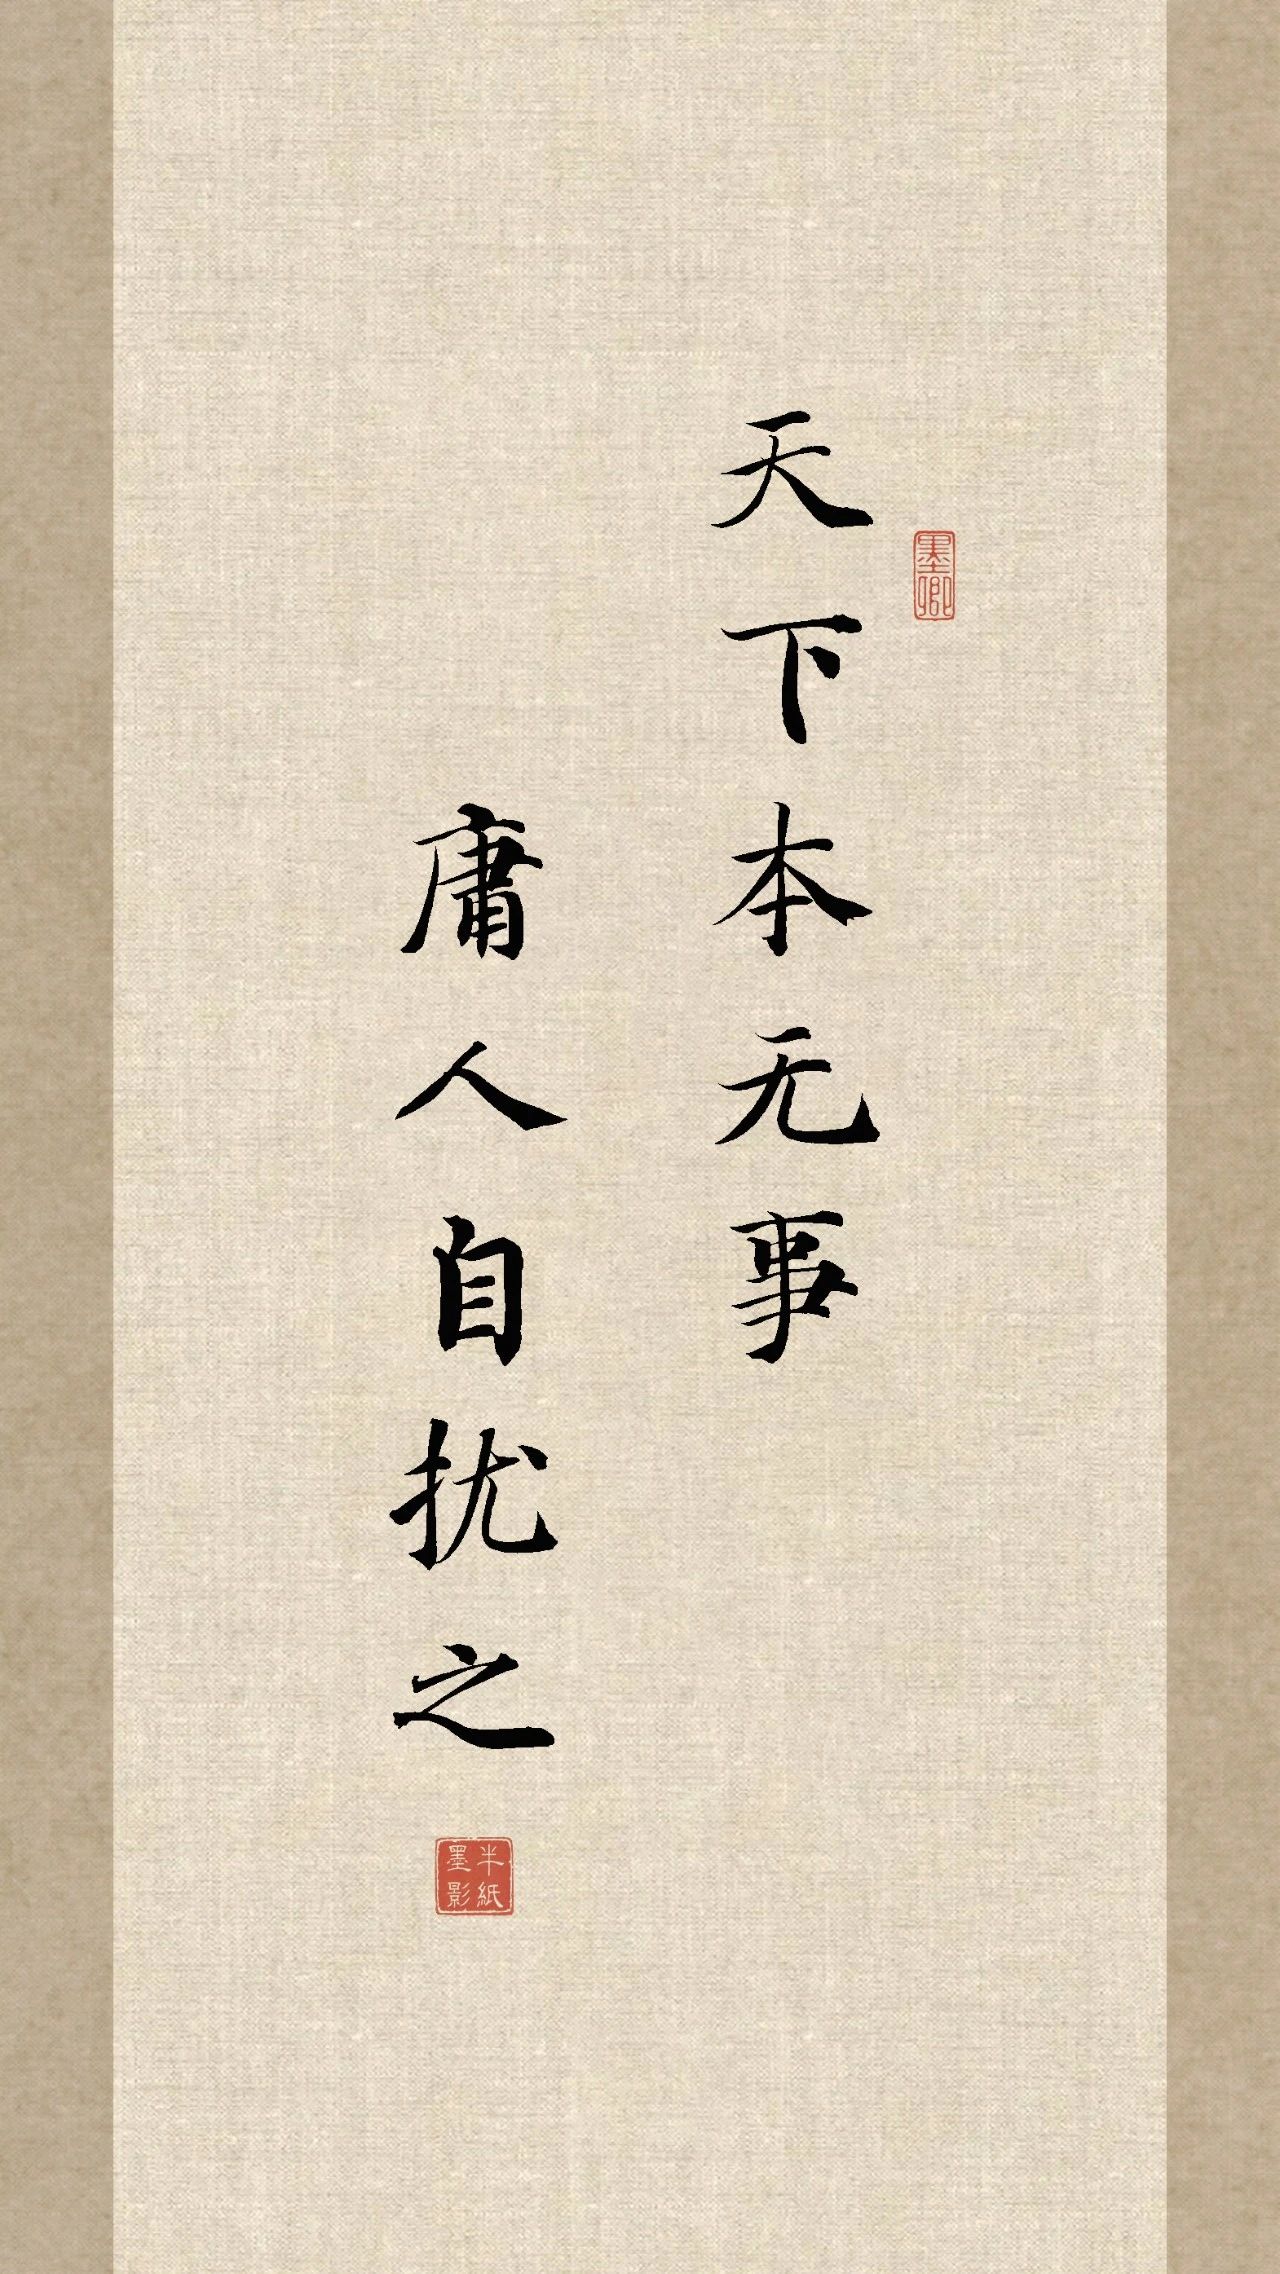 天下本无事
庸人自扰之
墨卿
半紙
墨影